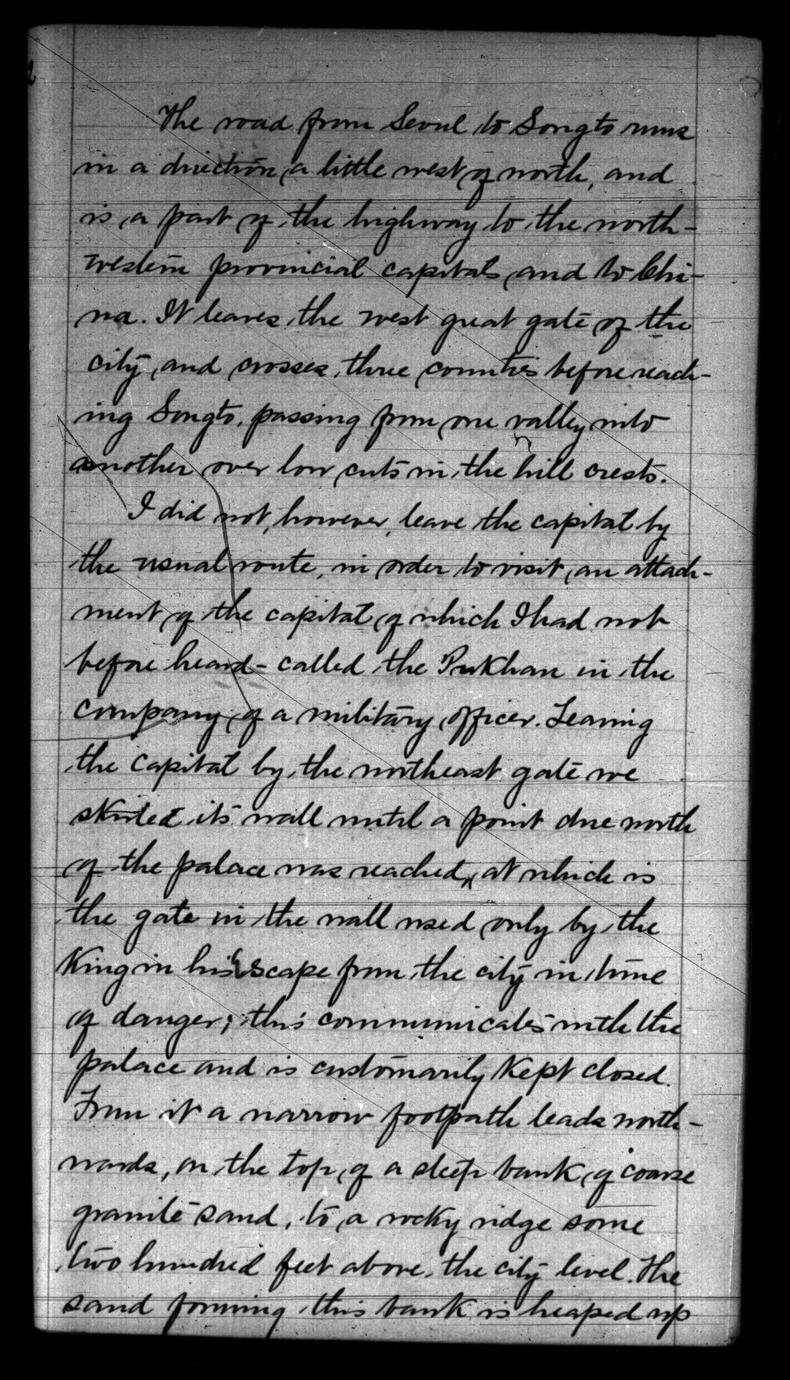 The road from Seoul to Songto runs
in a direction a little west of north, and
is a part of the highway to the north-
western provincial capitals and to Chi-
na. It leaves the west great gate of the
city, and crosses three counties before reach-
ing Songto, passing from one valley into
another over low cuts in the hill crests.
I did not, however, leave the capital by
the usual route, in order to visit an attach-
ment of the capital of which I had not
before heard - called the Pukhan in the
company of a military officer. Leaving
the capital by the northeast gate we
skirted its wall until a point due north
of the palace was reached, at which is
the gate in the wall used only by the
King in his escape from the city in time
of danger; this communicates with the
palace and is customarily kept closed.
From it a narrow footpath leads north-
wards, on the top of a steep bank of coarse
granite sand, to a rocky ridge some
two hundred feet above the city level. The
sand forming this bank is heaped up